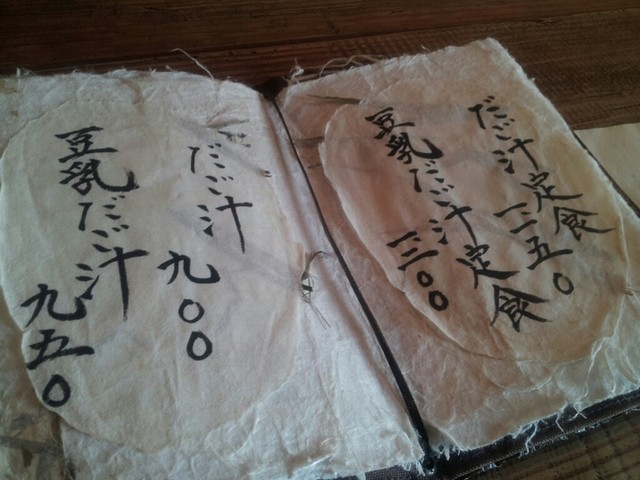 だご汁定食
一二五〇
豆乳だご汁定食
一三〇〇
だご汁
九〇〇
豆乳だご汁
九五〇